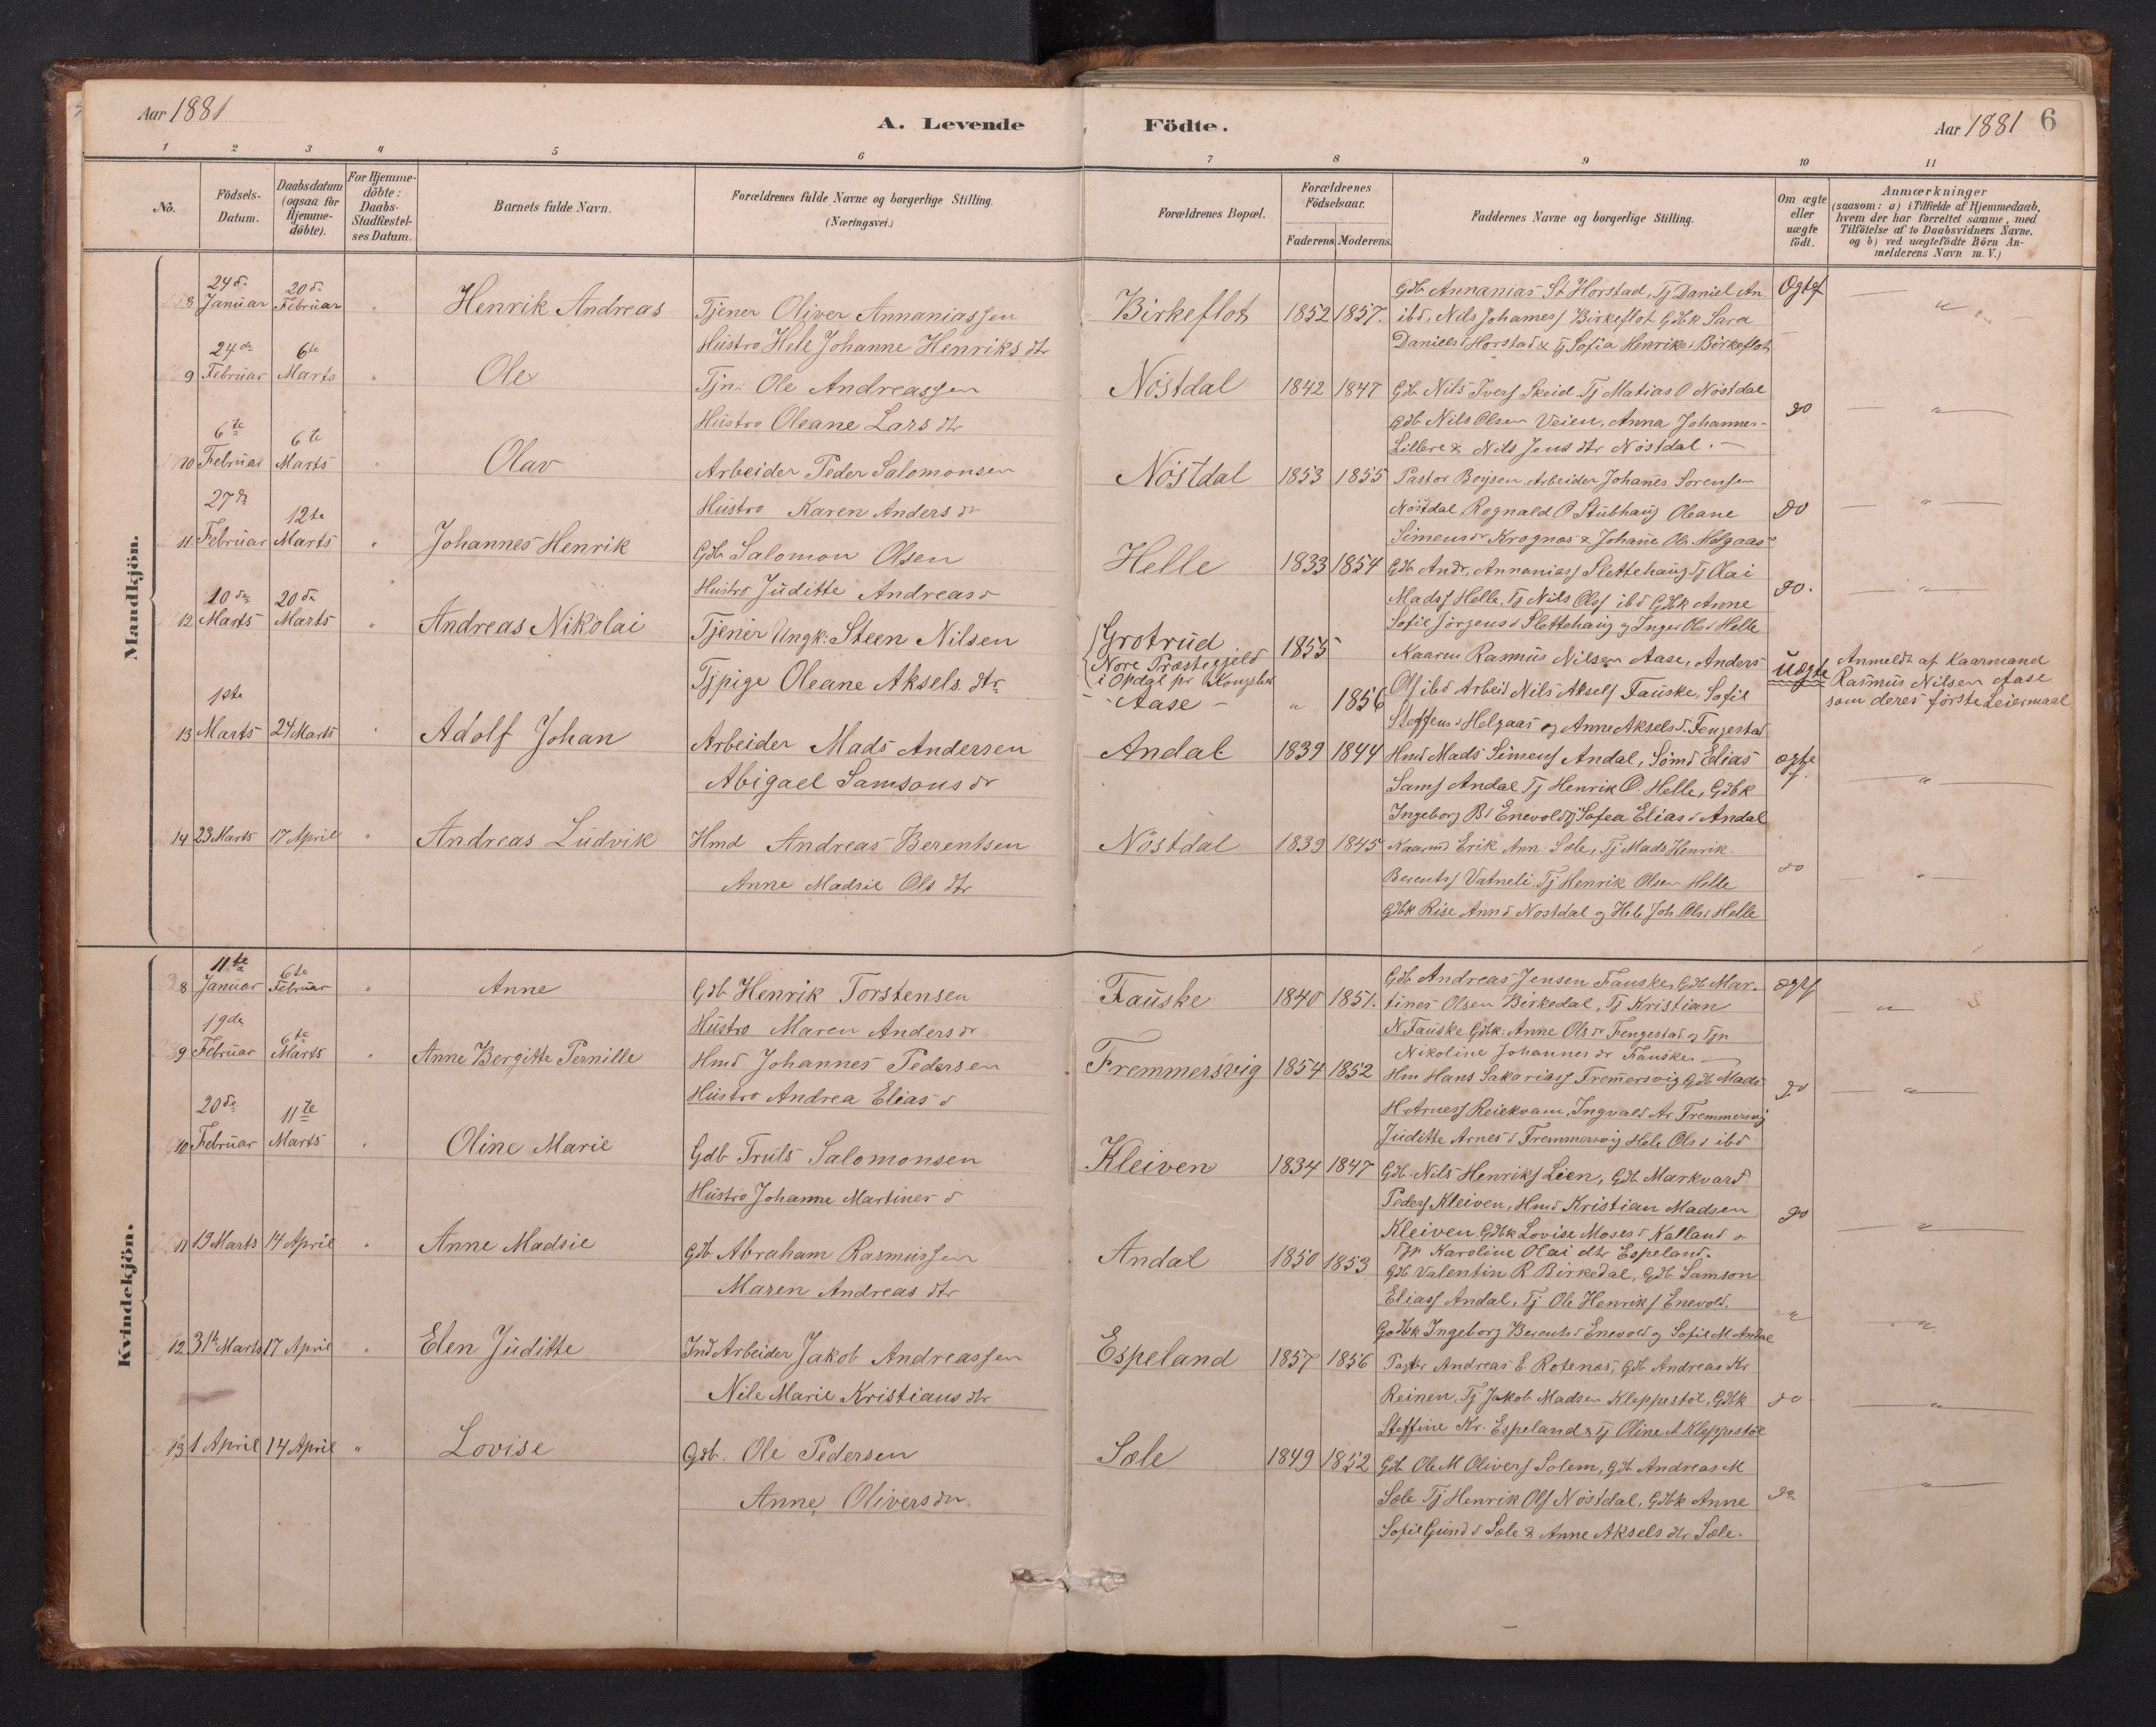 Aar 1881
A. Levende Födte.
Aar 1881 6
1 2 3 4 5 6 7 8 9 10 11
No.
Födsels-Datum.
Daabsdatum (ogsaa for Hjemme-döbte).
For Hjemme-döbte: Daabs-Stadfæstel-ses Datum.
Barnets fulde Navn.
Forældrenes fulde Navne og borgerlige Stilling.
(Næringsvei.)
Forældrenes Bopæl.
Forældrenes Födselsaar.
Faderens. Moderens.
Faddernes Navne og borgerlige Stilling.
Om ægte eller uægte födt.
Anmærkninger
(saasom: a) i Tilfælde af Hjemmedaab,
hvem der har forrettet samme, med
Tilföielse af to Daabsvidners Navne.
og b) ved uægtefödte Börn An-
melderens Navn m. V.)
Mandkjön.
8 24de Januar 20de Februar " Henrik Andreas Tjener Oliver Annaniassen
Hustro Hele Johanne Henriks dtr
Birkeflot 1852 1857.
Gdb Annanias St Horstad, Tj Daniel An.
ibd, Nils Johannesj Birkeflot Gdbk Sara
Daniels d Horstad & Tj Sofia Henriks d Birkeflot
Ogtef "
9 24de Februar 6te Marts " Ole Tjn: Ole Andreassen
Hustro Oleane Lars dtr
Nöstdal 1842 1847
Gdb Nils Iversj Skeid Tj Matias O Nöstdal
Gdb Nils Olsen Veien, Anna Johannes-
Lillere & Nils Jens dtr Nöstdal.
do "
10 6te Februar 6te Marts " Olav Arbeider Peder Salomonsen
Hustro Karen Anders dr
Nöstdal 1853 1855
Pastor Boysen, Arbeider Johanes Sorensen
Nöstdal Rognald P Stubhaug Oleane
Simens dr Krognæs & Johane Ols Helgaas
do "
11. 27de Februar 12te Marts " Johannes Henrik Gdb Salomon Olsen
Hustro Juditte Andreas d
Helle 1833 1854
Gdb Andr. Annaniasj Slettehaug Tj Olai
Madsj Helle, Tj Nils Olsj ibd Gdbk Anne
Sofie Jörgens d Slettehaug og Inger Ols d Helle
do. "
12 10de Marts 20de Marts " Andreas Nikolai Tjener Ungk: Steen Nilsen
Tjpige Oleane Aksels. dtr
Grotrud
Nore Præstegjeld
i Opdal pr Kongsberg
- Aase -
1855
" 1856
Kaarm Rasmus Nilsen Aase, Anders
Olsj ibd Arbeid Nils Akselsj Fauske, Sofie
Steffens d Helgaas og Anne Aksels d. Fengestad
Uægte
Anmeldt af Kaarmand
Rasmus Nilsen Aase
som deres förste Leiermaal
13 1ste Marts 24 Marts " Adolf Johan Arbeider Mads Andersen
Abigael Samsons dr
Andal 1839 1844
Hmd Mads Simensj Andal, Sömd Elias
Samsj Andal Tj Henrik O. Helle, Gdbk
Ingeborg B d Enevold og Sofea Elias d Andal
ægte f. "
14 23 Marts 17 April " Andreas Ludvik Hmd Andreas Berentsen
Anne Madsie Ols dtr
Nöstdal 1839 1845
Kaarmd Erik Ann. Sæle, Tj Mads Henrik
Berentsj Vatneli Tj Henrik Olsen Helle
Gdbk Rise Ann d Nostdal og Hele Joh Ols d Helle
do "
Kvindekjön.
8 11te Januar 6te Februar " Anne Gdb Henrik Torstensen
Hustro Maren Anders dr
Fauske 1840 1851.
Gdb Andreas Jensen Fauske, Gdb Mar-
tines Olsen Birkedal, Tj Kristian
N Fauske Gdbk: Anne Ols dr Fengestad og Tjn
Nikoline Johannes dr Fauske.
ægtf "
9 19de Februar 6te Marts " Anne Bergitte Pernille Hmd Johannes Pedersen
Hustro Andrea Elias d
Fremmersvig 1854 1852
Hm Hans Sakariasj Fremersvig Gdb Mads
H Arnesj Reiekvam, Ingvald Ar Fremmersvig
Juditte Arnes d Fremmersvig Hele Ols d ibd
do "
10 20de Februar 11te Marts " Oline Marie Gdb Truls Salomonsen
Hustro Johanne Martines d
Kleiven 1834 1847
Gdb Nils Henriksj Lien, Gdb Markvard
Pedersj Kleiven, Hmd Kristian Madsen
Kleiven Gdbk Lovise Moses d Kalland &
Tjp Karoline Olai dtr Espeland.
do "
11 19 Marts 14 April " Anne Madsie Gdb Abraham Rasmussen
Maren Andreas dtr
Andal 1850 1853
Gdb Valentin R Birkedal, Gdb Samson
Eliasj Andal, Tj Ole Henriksj Enevold.
Gdbk Ingeborg Berents d Enevold og Sofie M Andal
" "
12 31te Marts 17 April " Elen Juditte Ind Arbeider Jakob Andreassen
Nile Marie Kristians dtr
Espeland 1857 1856
Andreas E. Rotenæs, Gdb Andreas Kr
Reinen, Tj Jakob Madsen Kleppestöl, Gdbk
Steffine Kr. Espeland & Tj Oline A Kleppestöl
do "
13 1 April 14 April " Lovise Gdb. Ole Pedersen
Anne Olivers dtr
Sæle 1849 1852
Gdb Ole M Oliversj Solem, Gdb Andreas M
Sæle Tj Henrik Olsj Nöstdal, Gdbk Anne
Sofie Gund d Sæle & Anne Aksels dtr Sæle.
do "